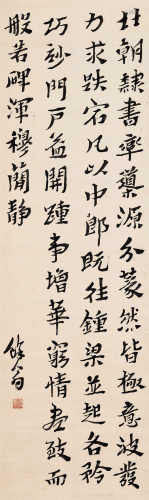 北朝隸書率導源分篆然皆極意波發
力求跌宕凡以中郎既往鍾梁並起各矜
巧妙門戶益開踵事增華窮情盡致而
般若碑渾穆簡静
餘翁